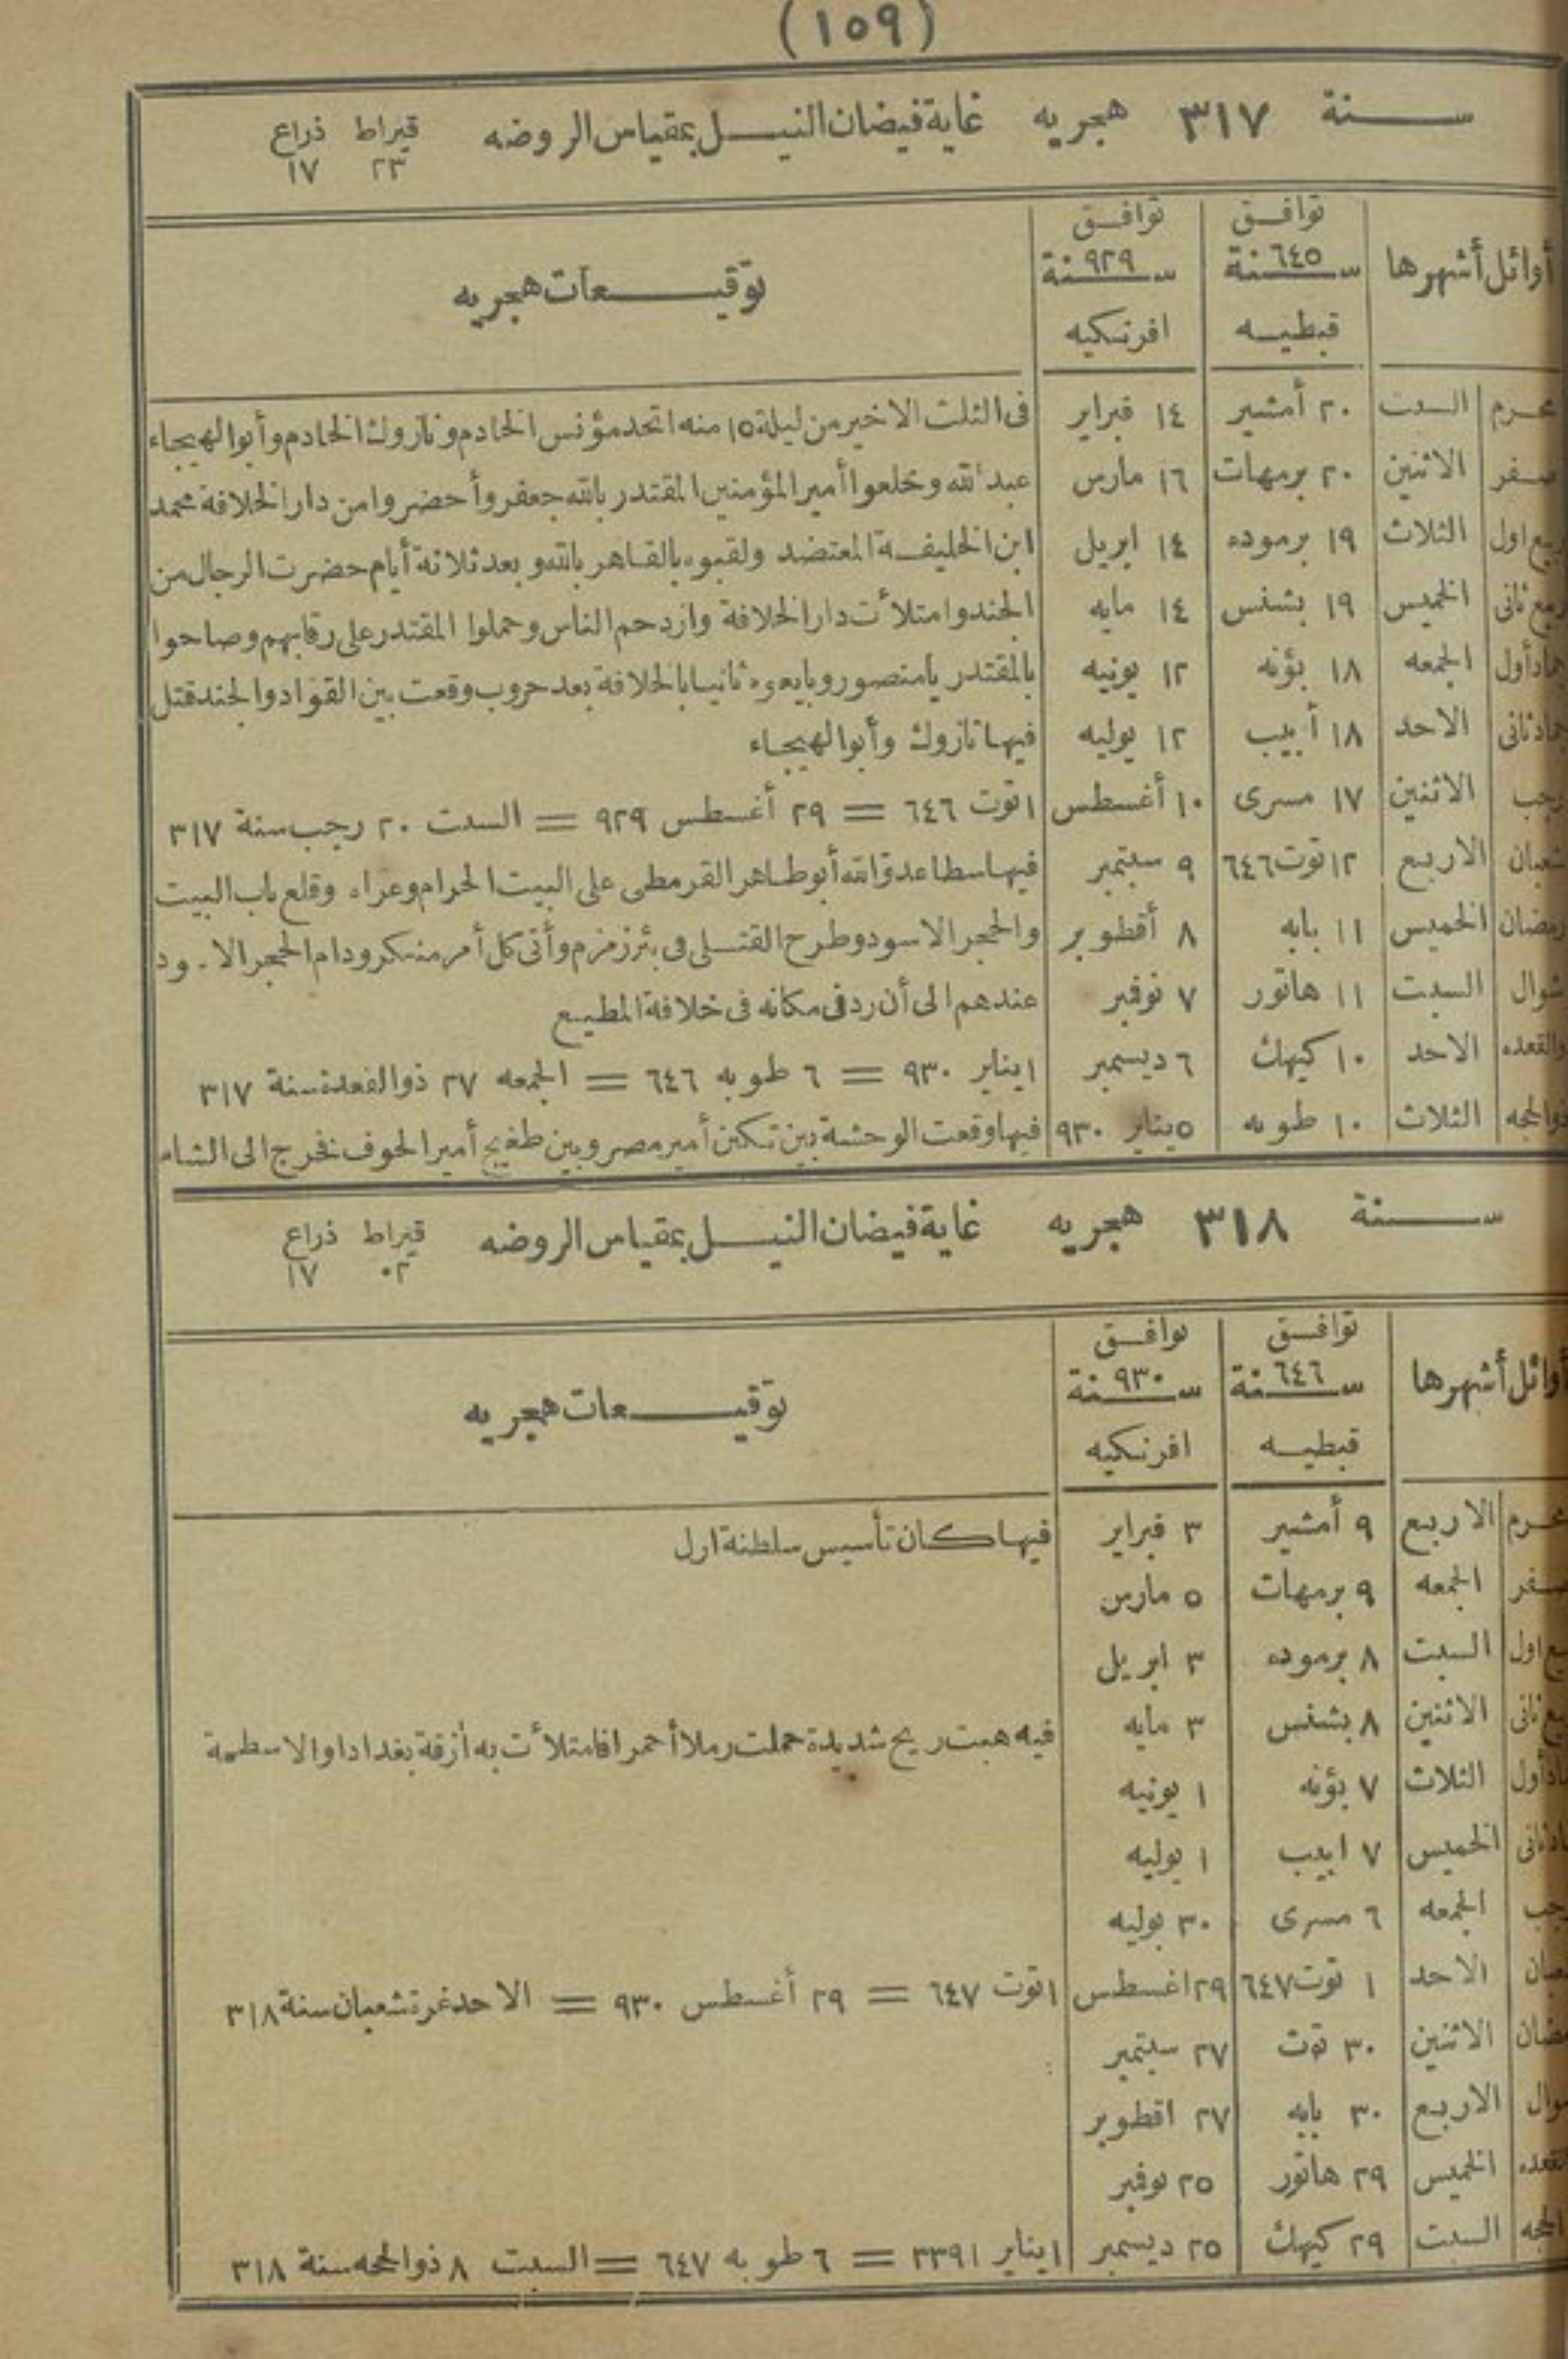 (١٥٩)
سنة ٣١٧ هجريه غاية فيضان النيل بمقياس الروضه قيراط ذراع
٢٣ ١٧
أوائل أشهرها توافق سنة ٦٤٥ قبطيه توافق سنة ٩٢٩ افرنكيه توقيعات هجريه
محرم السبت ٢٠ أمشير ١٤ فبراير فى الثلث الاخير من ليلة ١٥ منه اتحد مؤنس الخادم ونازوك الخادم وأبوالهيجاء
صفر الاثنين ٢٠ برمهات ١٦ مارس عبدالله وخلعوا أمير المؤمنين المقتدر بالله جعفر وأحضروا من دار الخلافة محمد
ربيع اول الثلاث ١٩ برموده ١٤ ابريل ابن الخليفة المعتضد ولقبوه بالقاهر بالله وبعد ثلاثة أيام حضرت الرجال من
ربيع ثانى الخميس ١٩ بشنس ١٤ مايه الجند وامتلأت دار الخلافة وازدحم الناس وحملوا المقتدر على رقابهم وصاحوا
جماد أول الجمعه ١٨ بؤنه ١٢ يونيه بالمقتدر يا منصور وبايعوه ثانيا بالخلافة بعد حروب وقعت بين القواد والجند قتل
جماد ثانى الاحد ١٨ أبيب ١٢ يوليه فيها نازوك وأبوالهيجاء
رجب الاثنين ١٧ مسرى ١٠ أغسطس ١ توت ٦٤٦ = ٢٩ أغسطس ٩٢٩ = السبت ٢٠ رجب سنة ٣١٧
شعبان الاربع ١٢ توت ٦٤٦ ٩ سبتمبر فيها سطا عدو الله أبوطاهر القرمطى على البيت الحرام وعراه وقلع باب البيت
رمضان الخميس ١١ بابه ٨ أقطوبر والحجر الاسود وطرح القتلى فى بئر زمزم وأتى كل أمر منكر ودام الحجر الا.ود
شوال السبت ١١ هاتور ٧ نوفبر عندهم الى أن رد فى مكانه فى خلافة المطيع
ذوالقعده الاحد ١٠ كيهك ٦ ديسمبر ١ يناير ٩٣٠ = ٦ طوبه ٦٤٦ = الجمعه ٢٧ ذوالقعدة سنة ٣١٧
ذوالحجه الثلاث ١٠ طوبه ٥ يناير ٩٣٠ فيها وقعت الوحشة بين تكين أمير مصر وبين طغج أمير الحوف فخرج الى الشام
سنة ٣١٨ هجريه غاية فيضان النيل بمقياس الروضه قيراط ذراع
٠٢ ١٧
أوائل أشهرها توافق سنة ٦٤٦ قبطيه توافق سنة ٩٣٠ افرنكيه توقيعات هجريه
محرم الاربع ٩ أمشير ٣ فبراير فيها كان تأسيس سلطنة ارل
صفر الجمعه ٩ برمهات ٥ مارس
ربيع اول السبت ٨ برموده ٣ ابريل
ربيع ثانى الاثنين ٨ بشنس ٣ مايه فيه هبت ريح شديدة حملت رملا أحمر افامتلأت به أزقة بغداد
جماد أول الثلاث ٧ بؤنه ١ يونيه
جماد ثانى الخميس ٧ ابيب ١ يوليه
رجب الجمعه ٦ مسرى ٣٠ يوليه
شعبان الاحد ١ توت ٦٤٧ ٢٩ اغسطس ١ توت ٦٤٧ = ٢٩ أغسطس ٩٣٠ = الاحد غرة شعبان سنة ٣١٨
رمضان الاثنين ٣٠ توت ٢٧ سبتمبر
شوال الاربع ٣٠ بابه ٢٧ اقطوبر
القعده الخميس ٢٩ هاتور ٢٥ نوفبر
الحجه السبت ٢٩ كيهك ٢٥ ديسمبر ١ يناير ٣٣٩١ = ٦ طوبه ٦٤٧ = السبت ٨ ذوالحجه سنة ٣١٨